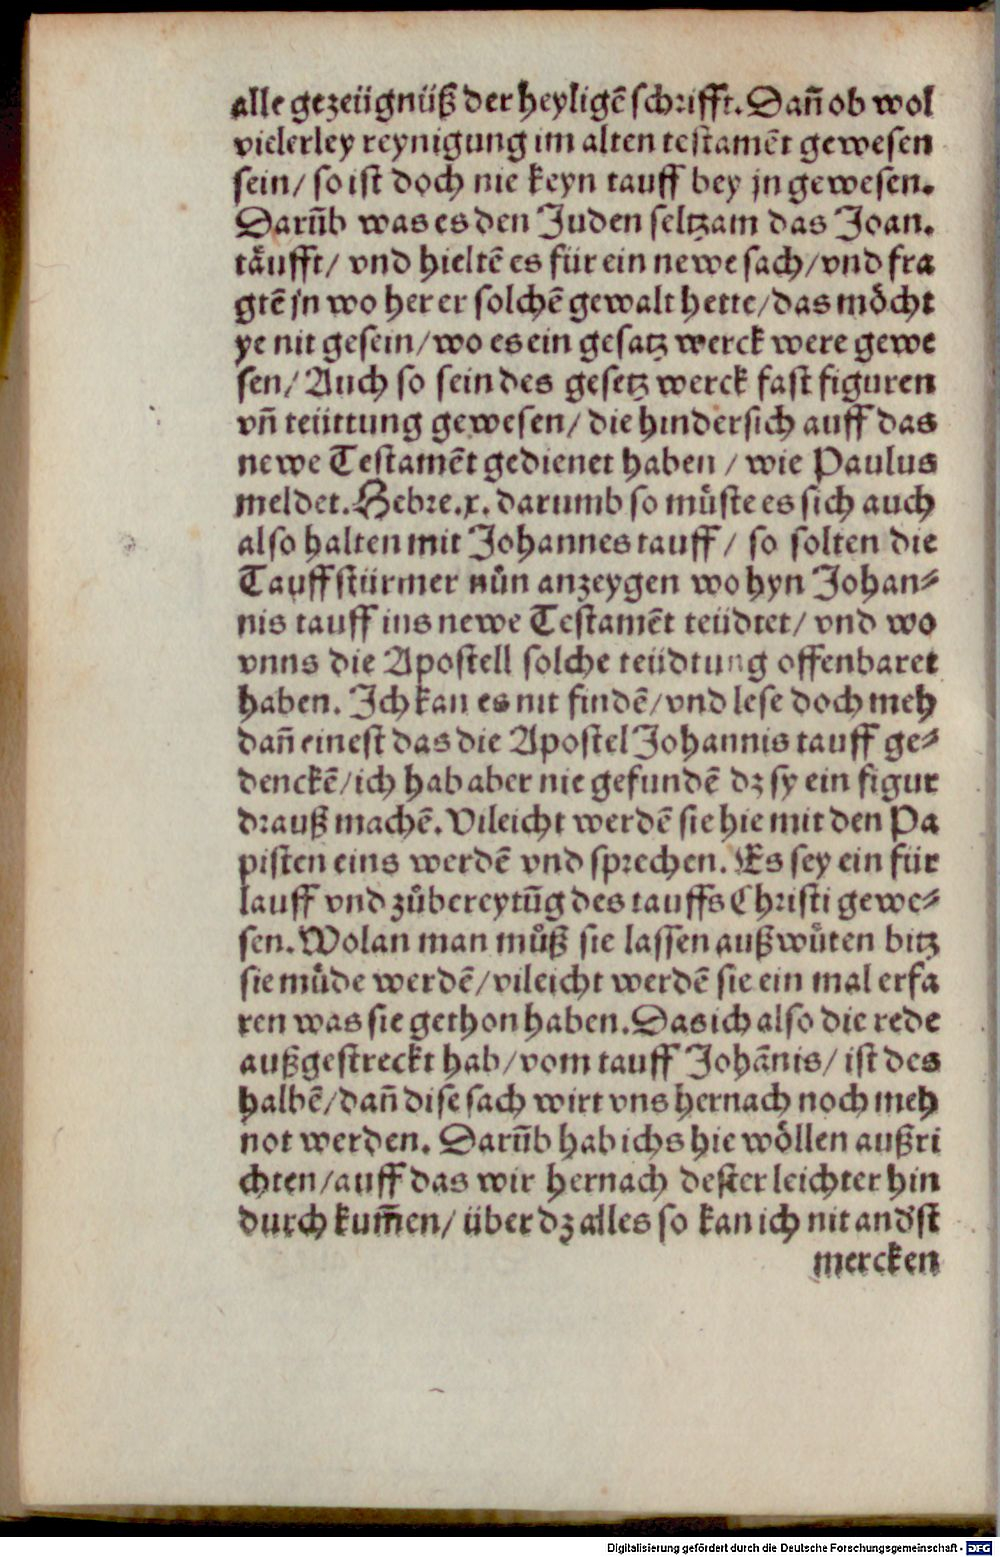 alle gezeügnüß der heyligē schrifft. Dañ ob wol
vielerley reynigung im alten testamēt gewesen
sein/ so ist doch nie keyn tauff bey jn gewesen.
Darūb was es den Juden seltzam das Joan.
taͤufft/ vnd hieltē es für ein newe sach/vnd fra
gtē jn wo her er solchē gewalt hette/das moͤcht
ye nit gesein/wo es ein gesatz werck were gewe
sen/ Auch so sein des gesetz werck fast figuren
vñ teüttung gewesen/ die hindersich auff das
newe Testamēt gedienet haben / wie Paulus
meldet. Hebre.x. darumb so muͤste es sich auch
also halten mit Johannes tauff / so solten die
Tauffstürmer nuͤn anzeygen wo hyn Johan⸗
nis tauff ins newe Testamēt teüdtet/ vnd wo
vnns die Apostell solche teüdtung offenbaret
haben. Ich kan es nit findē/vnd lese doch meh
dañ einest das die Apostel Johannis tauff ge⸗
denckē/ich hab aber nie gefundē dz sy ein figur
drauß machē. Vileicht werdē sie hie mit den Pa
pisten eins werdē vnd sprechen. Es sey ein für
lauff vnd zůbereytūg des tauffs Christi gewe⸗
sen. Wolan man můß sie lassen auß wuͤten bitz
sie muͤde werdē/vileicht werdē sie ein mal erfa
ren was sie gethon haben. Das ich also die rede
außgestreckt hab/vom tauff Johānis/ ist des
halbē/dañ dise sach wirt vns hernach noch meh
not werden. Darūb hab ichs hie woͤllen außri
chten/auff das wir hernach dester leichter hin
durch kum̄en/ über dz alles so kan ich nit and'st
mercken
Digitalisierung gefördert durch die Deutsche Forschungsgemeinschaft - DFG